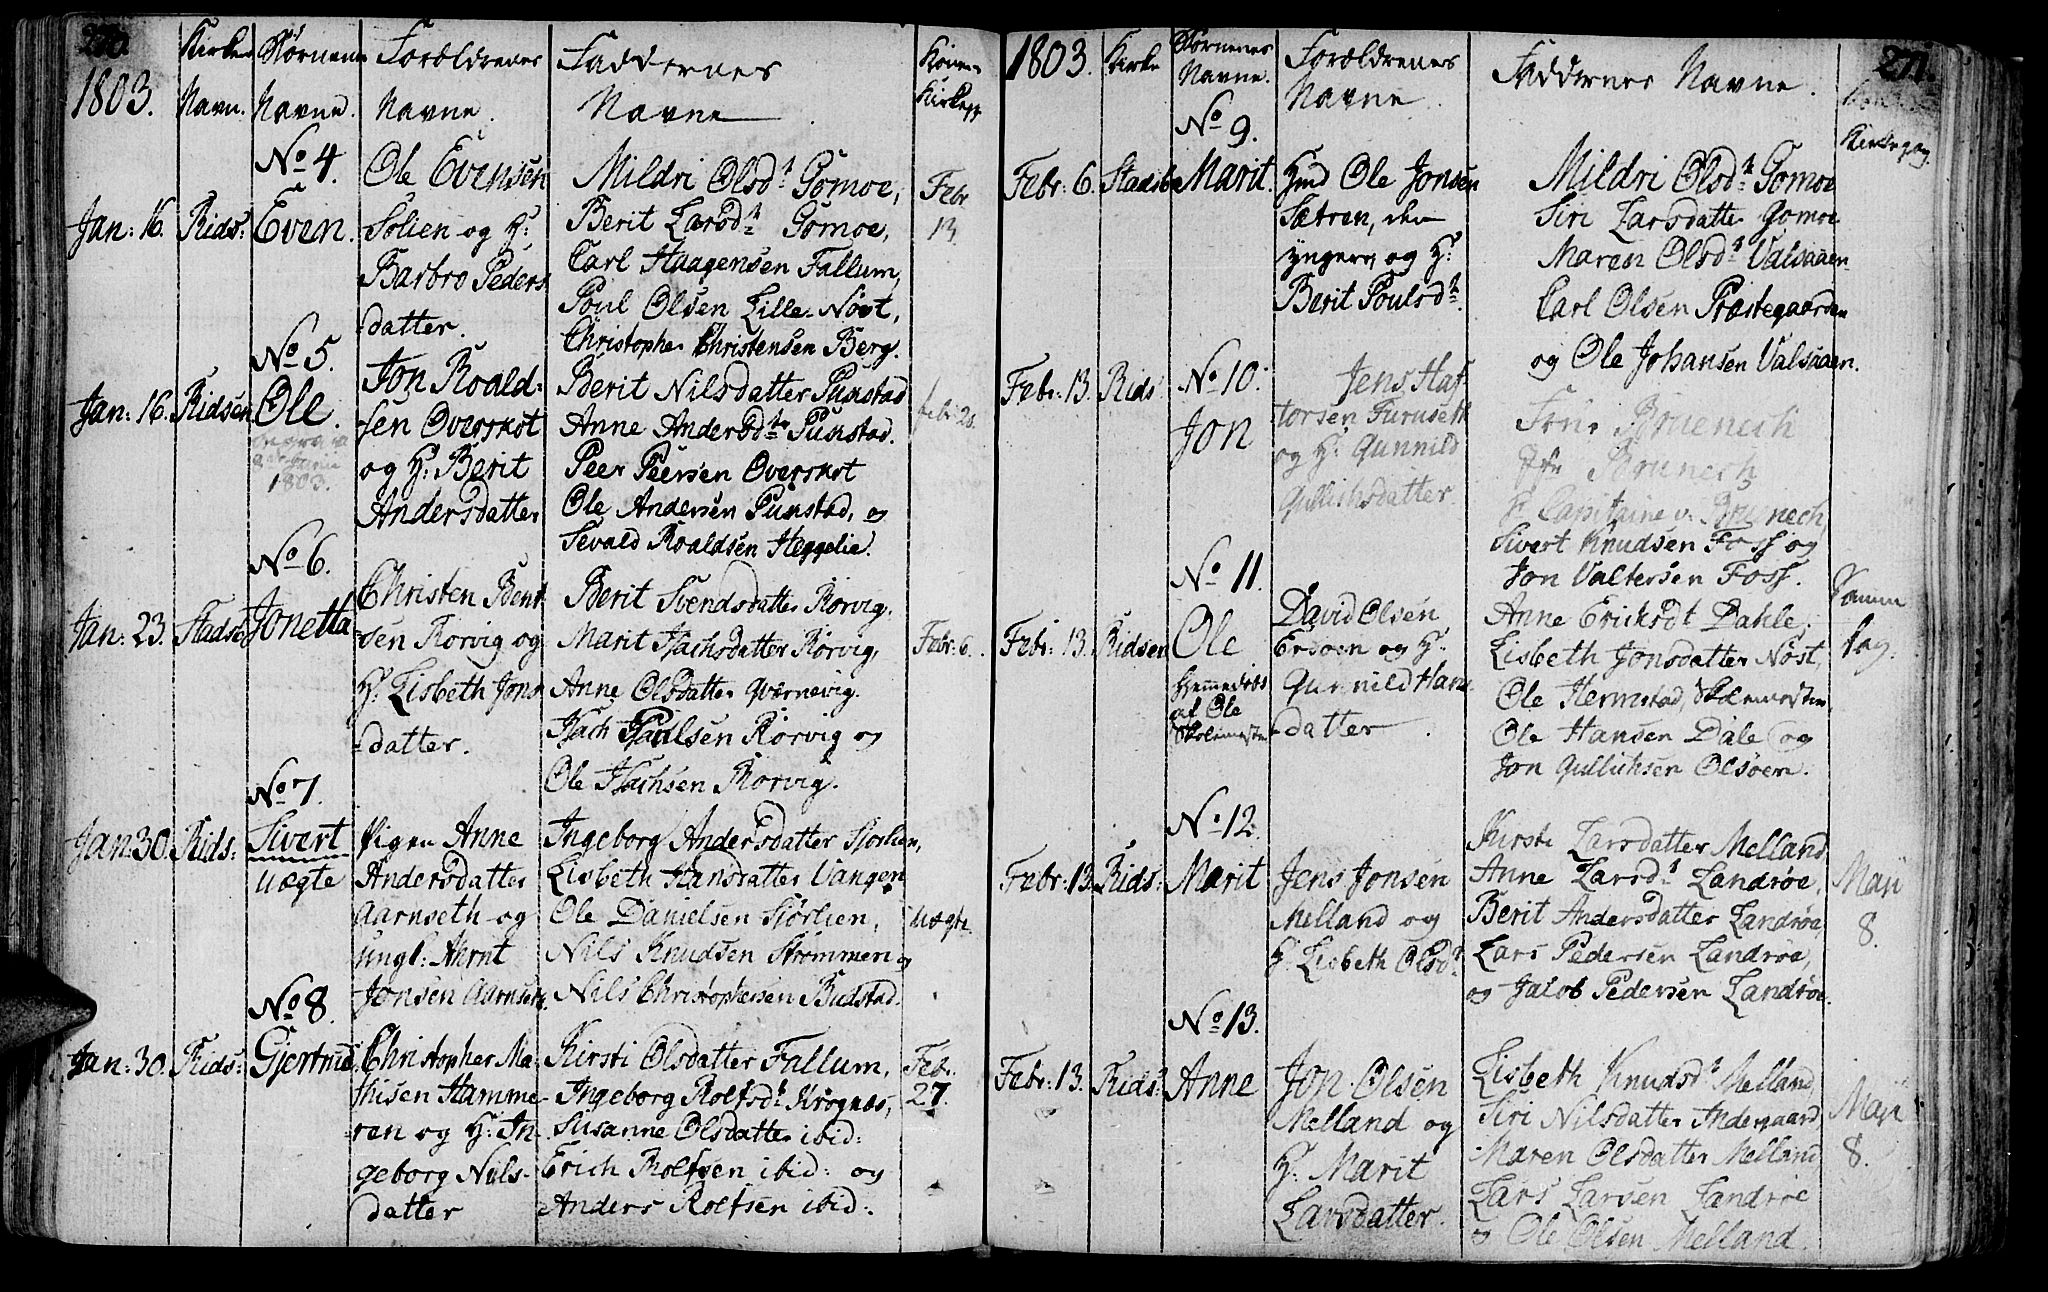 270.
1803.
Kirke
Navn.
Børnenes
Navne.
Forældrenes
Navne.
Faddernes
Navne
Konens
Kirkeg.
No 4.
Jan: 16. Rids: Even.
Ole Evensen
Solien og H:
Barbro Peders
datter.
Mildri Olsdt Gomoe,
Berit Larsdt Gomoe,
Carl Haagensen Fallum,
Poul Olsen Lille-Nøst,
Christopher Christensen Berg.
Febr
13.
No 5.
Jan: 16. Ridsen Ole.
1803.
Jon Roald-
sen Overskot
og H: Berit
Andersdatter
Berit Nilsdatter Punstad
Anne Andersdtr Punstad.
Peer Peersen Overskot
Ole Andersen Punstad, og
Sevald Roaldsen Heggelie.
febr: 20.
No 6.
Jan: 23. Stadsb Jonetta
Christen Bent-
sen Rørvig og
H: Lisbeth Jons
datter.
Berit Svendsdatter Rørvig,
Marit Isachsdatter Rørvig,
Anne Olsdatter Qvernevig.
Isach Paulsen Rørvig og
Ole Isachsen Rørvig.
Febr: 6.
No 7.
Jan: 30. Rids: Sivert
Uægte
Pigen Anne
Andersdatter
Aarnseth og
Ungk: Arnt
Jonsen Aarnseth.
Ingeborg Andersdatter Siørlien,
Lisbeth Hansdatter Vangen
Ole Danielsen Siørlien,
Nils Knudsen Strømmen og
Nils Christophersen Budstad.
Uægte.
No 8.
Jan: 30. Rids: Gjertrud
Christopher Ma-
thisen Hamme-
ren og H: In-
geborg Nils-
datter
Kirsti Olsdatter Fallum,
Ingeborg Rolfsdt Krognes,
Susanne Olsdatter ibid:
Erich Rolfsen ibid: og
Anders Rolfsen ibid:
Febr.
27.
271.
1803.
Kirke
Børnenes
Navne.
Forældrenes
Navne.
Faddernes Navne.
Kirkegag.
No 9.
Febr: 6. Stadsb Marit.
Hmd Ole Jonsen
Sætren, den
yngere, og H:
Berit Poulsdt
Mildri Olsdt Gomoe
Siri Larsdatter Gomoe
Maren Olsdt Valsaaen
Carl Olsen Præstegaarden
og Ole Johansen Valsaaen.
No 10.
Febr: 13. Rids. Jon
Jens Haf
torsen Furuseth
og H: Gunnild
Gullichsdatter
Brunech
Brunech
H: Capitaine v. Brunech,
Sivert Knudsen Foss og
Jon Valtersen Foss.
No 11.
Febr: 13. Ridsen Ole
hjemmedøbt
af Ole
Skolemester
David Olsen
Endoen og H:
Gunnild Hans
datter.
Anne Eriksdt Dahle.
Lisbeth Jonsdatter Nøst,
Ole Hermstad, Skolemester
Ole Hansen Dale og
Jon Gullichsen Olsøen.
Samme
Dag.
No 12.
Febr: 13. Rids: Marit
Jens Jonsen
Melland og
H: Lisbeth Olsdt
Kirsti Larsdatter Melland
Anne Larsdt Landrøe,
Berit Andersdatter Landrøe,
Lars Pedersen Landrøe,
og Jacob Pedersen Landrøe.
Maji
8.
No 13.
Febr: 13. Rids: Anne
Jon Olsen
Melland og
H: Marit
Larsdatter.
Lisbeth Knudsdt Melland
Siri Nilsdatter Indergaard
Maren Olsdatter Melland
Lars Larsen Landrøe
og Ole Olsen Melland.
Maji
8.